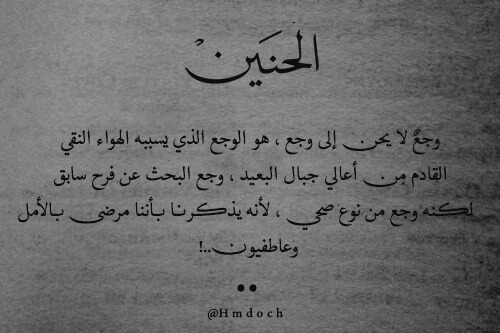 الحنَينْ
وجعٌ لا يحن إلى وجع ، هو الوجع الذي يسببه الهواء النقي
القادم مِن أعالي جبال البعيد ، وجع البحث عن فرح سابق
لكنه وجع من نوع صحي ، لأنه يذكرنا بأننا مرضى بالأمل
وعاطفيون..!
@Hmdoch